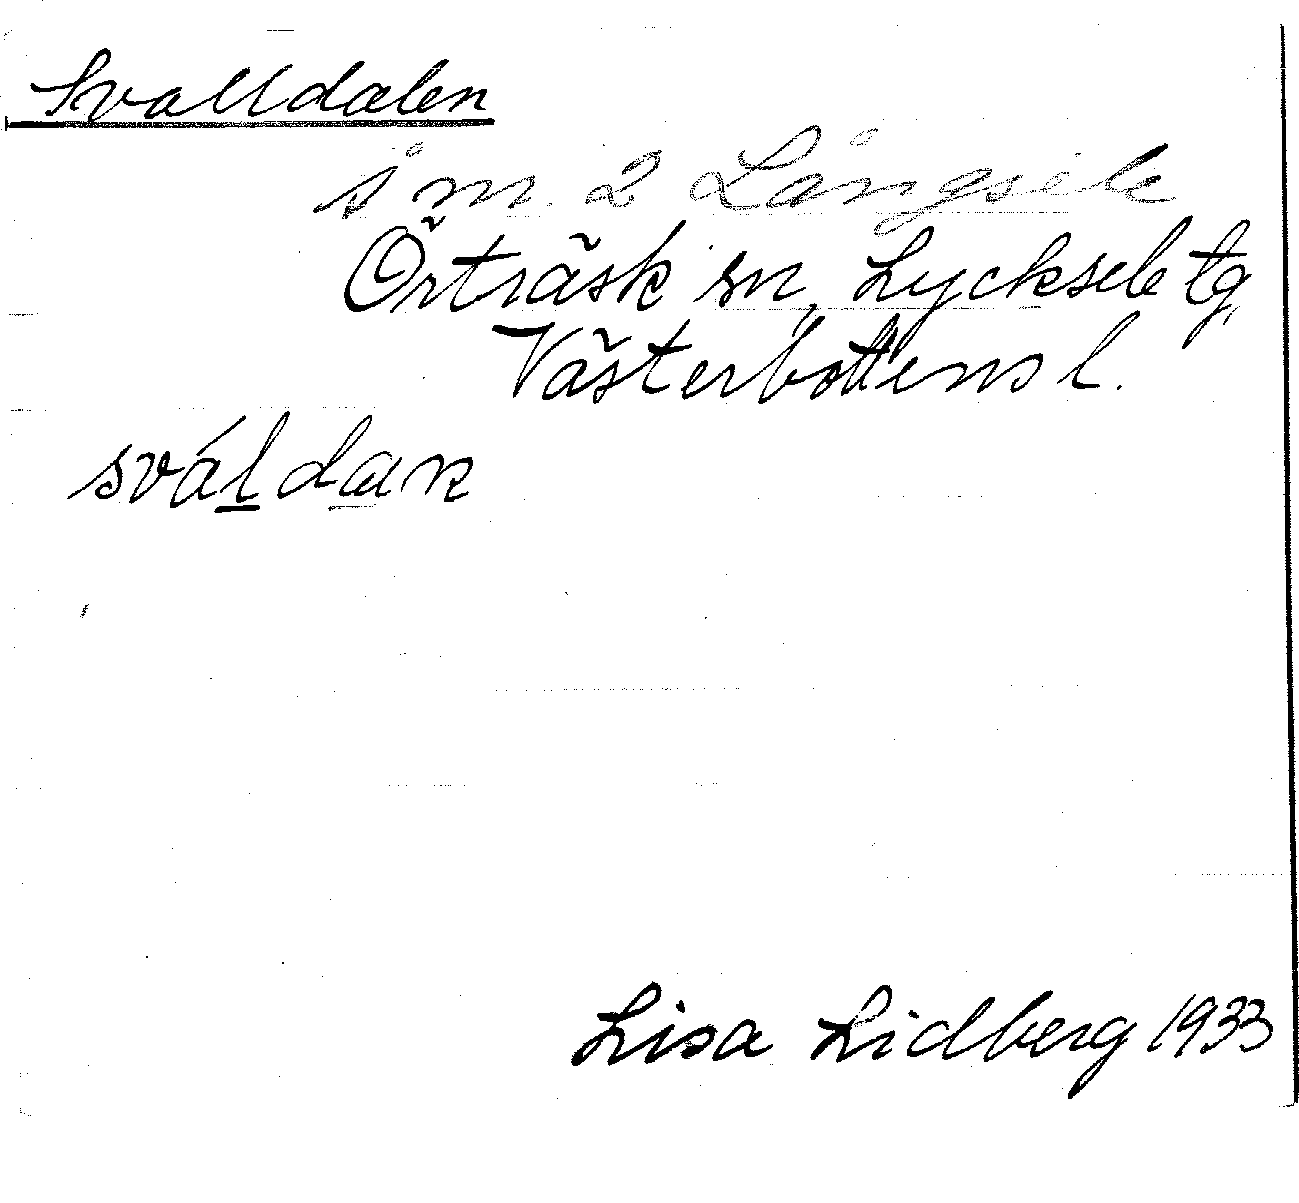 Svalldalen
å m. 2 Långsele
Örträsk sn, Lycksele tg,
Västerbottens l.
sváldaɴ
Lisa Lidberg 1933